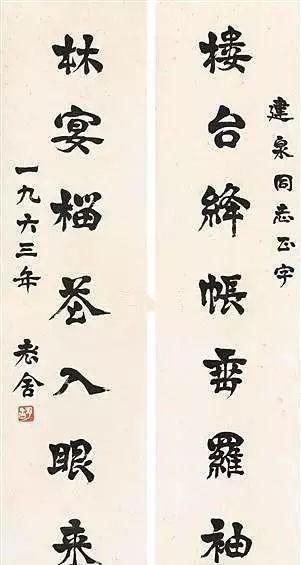 建泉同志正字
楼台絳帳垂羅袖
林宴榴花入眼来
一九六三年 老舍